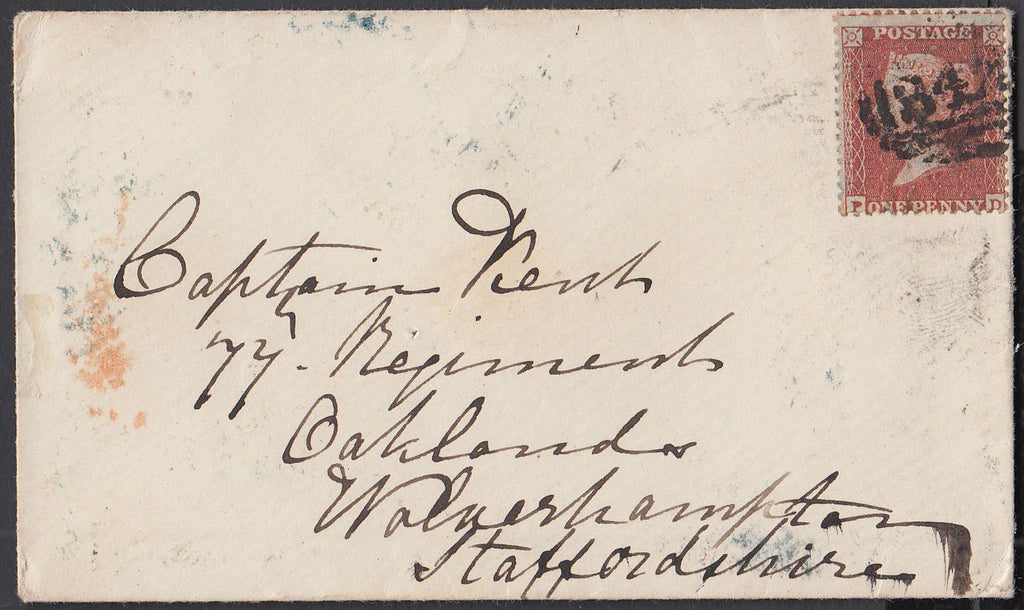 POSTAGE
ONE PENNY
P D
Captain Kent
77. Regiment
Oaklands
Wolverhampton
Staffordshire